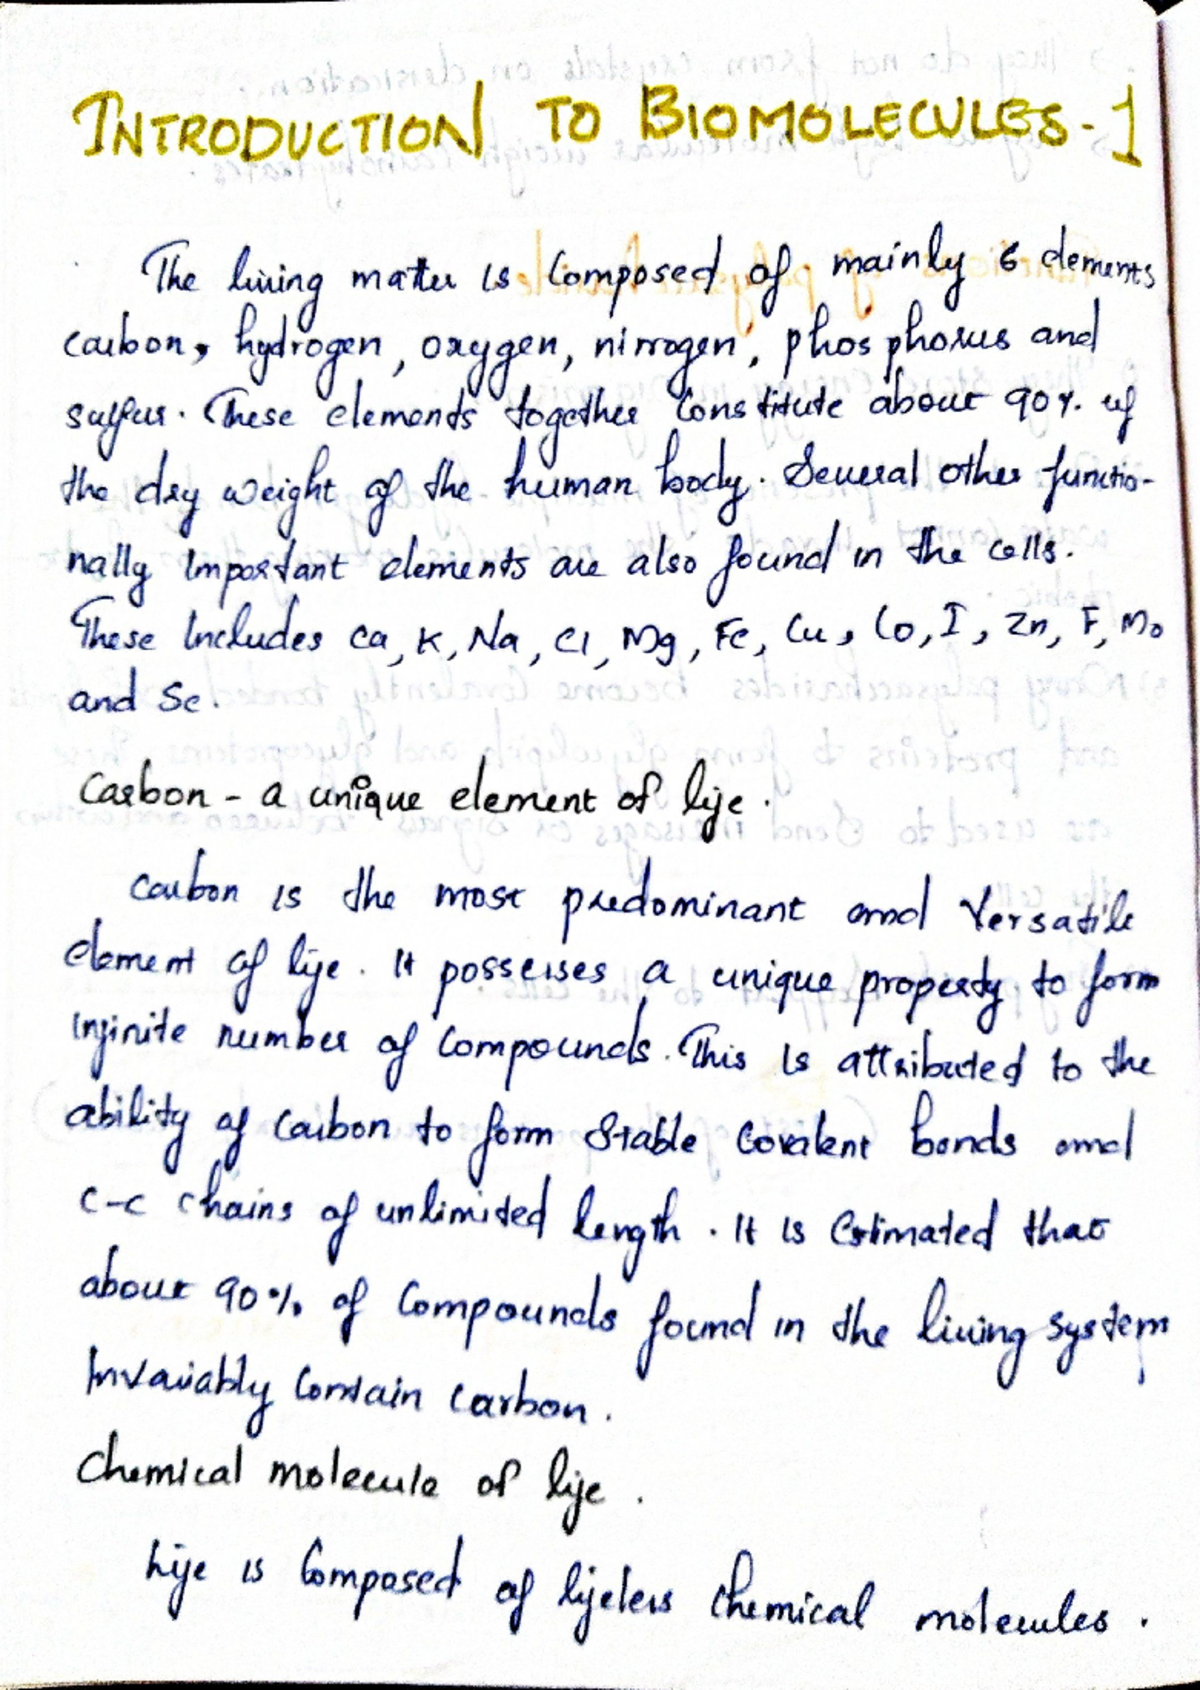 INTRODUCTION TO BIOMOLECULES-1
The living matter is composed of mainly 6 elements
carbon, hydrogen, oxygen, nitrogen, phosphorus and
sulfur. These elements together constitute about 90%. of
the dry weight of the human body. Several other functio-
nally important elements are also found in the cells.
These Includes Ca, K, Na, Cl, Mg, Fe, Cu, Co, I, Zn, F, Mo
and Se.
Carbon - a unique element of life.
Carbon is the most predominant and versatile
element of life. It possesses a unique property to form
infinite number of compounds. This is attributed to the
ability of carbon to form stable covalent bonds and
C-C chains of unlimited length. It is estimated that
about 90% of compounds found in the living system
invariably contain carbon.
Chemical molecule of life.
Life is composed of lifeless chemical molecules.